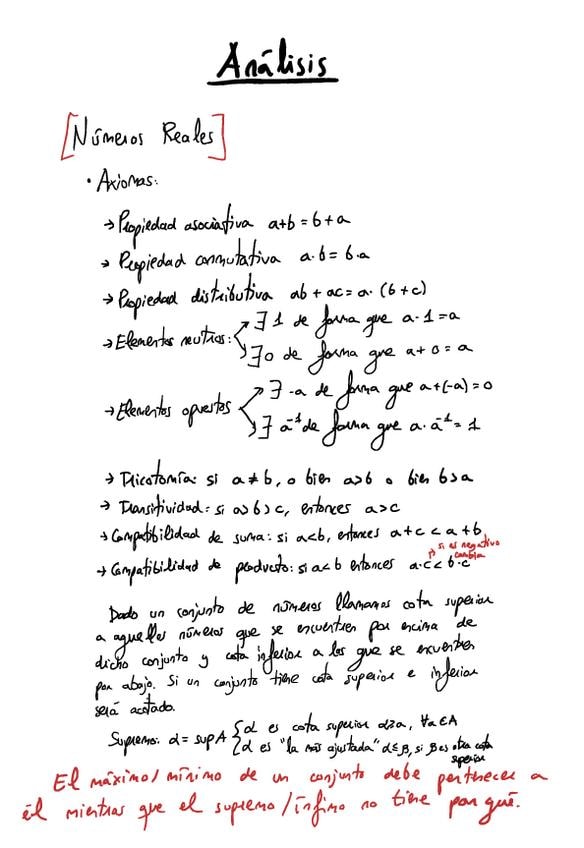 Análisis
[Números Reales]
• Axiomas:
→ Propiedad asociastiva a+b = b+a
→ Propiedad conmutativa a·b = b·a
→ Propiedad distributiva ab + ac = a·(b+c)
→ Elementos neutros: ∃ 1 de forma que a·1=a
∃ 0 de forma que a+0=a
→ Elementos opuestos ∃ -a de forma que a+(-a)=0
∃ a⁻¹ de forma que a·a⁻¹=1
→ Tricotomía: si a≠b, o bien a>b o bien b>a
→ Transitividad: si a>b>c, entonces a>c
→ Compatibilidad de suma: si a<b, entonces a+c < a+b
→ Compatibilidad de producto: si a<b entonces a·c < b·c
si es negativo
cambia
Dado un conjunto de números llamamos cota superior
a aquellos números que se encuentren por encima de
dicho conjunto y cota inferior a los que se encuentren
por abajo. Si un conjunto tiene cota superior e inferior
será acotado.
Supremo: α = sup A { α es cota superior α≥a, ∀a∈A
α es "la más ajustada" α≤β, si β es otra cota
superior
El máximo/mínimo de un conjunto debe pertenecer a
él mientras que el supremo/ínfimo no tiene por qué.